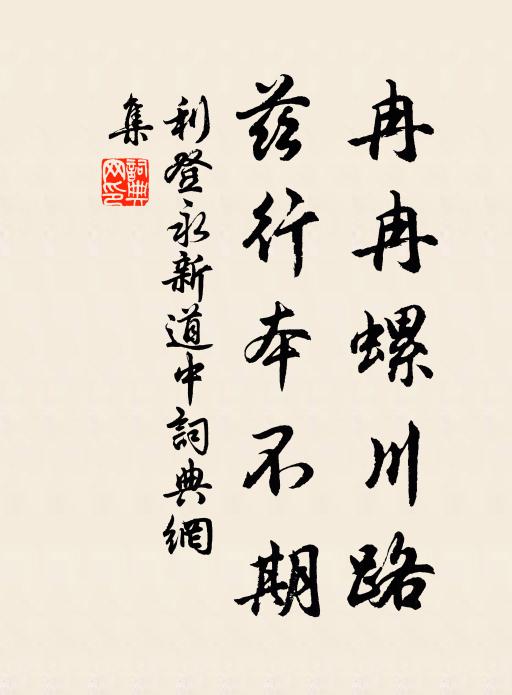 冉冉螺川路
茲行本不期
利登永新道中詞典網
集
詞典網印